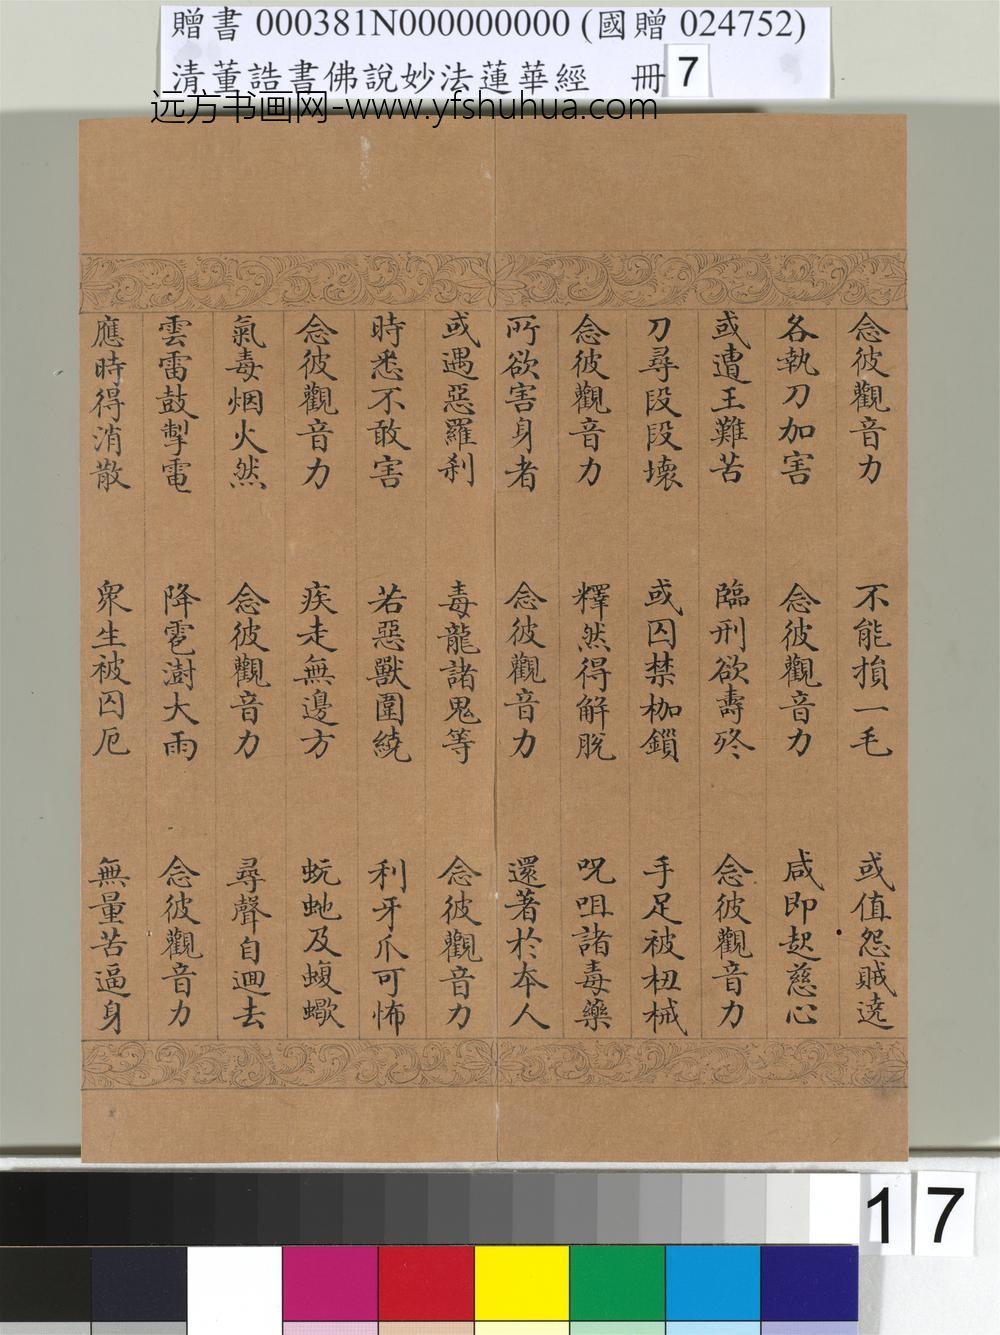 贈書 000381N000000000 (國贈 024752)
清董誥書佛說妙法蓮華經 冊 7
远方书画网-www.yfshuhua.com
念彼觀音力 不能損一毛 或值怨賊遶
各執刀加害 念彼觀音力 咸即起慈心
或遭王難苦 臨刑欲壽終 念彼觀音力
刀尋段段壞 或囚禁枷鎖 手足被杻械
念彼觀音力 釋然得解脫 呪咀諸毒藥
所欲害身者 念彼觀音力 還著於本人
或遇惡羅剎 毒龍諸鬼等 念彼觀音力
時悉不敢害 若惡獸圍繞 利牙爪可怖
念彼觀音力 疾走無邊方 蚖虵及蝮蠍
氣毒烟火然 念彼觀音力 尋聲自迴去
雲雷鼓掣電 降雹澍大雨 念彼觀音力
應時得消散 眾生被囚厄 無量苦逼身
17